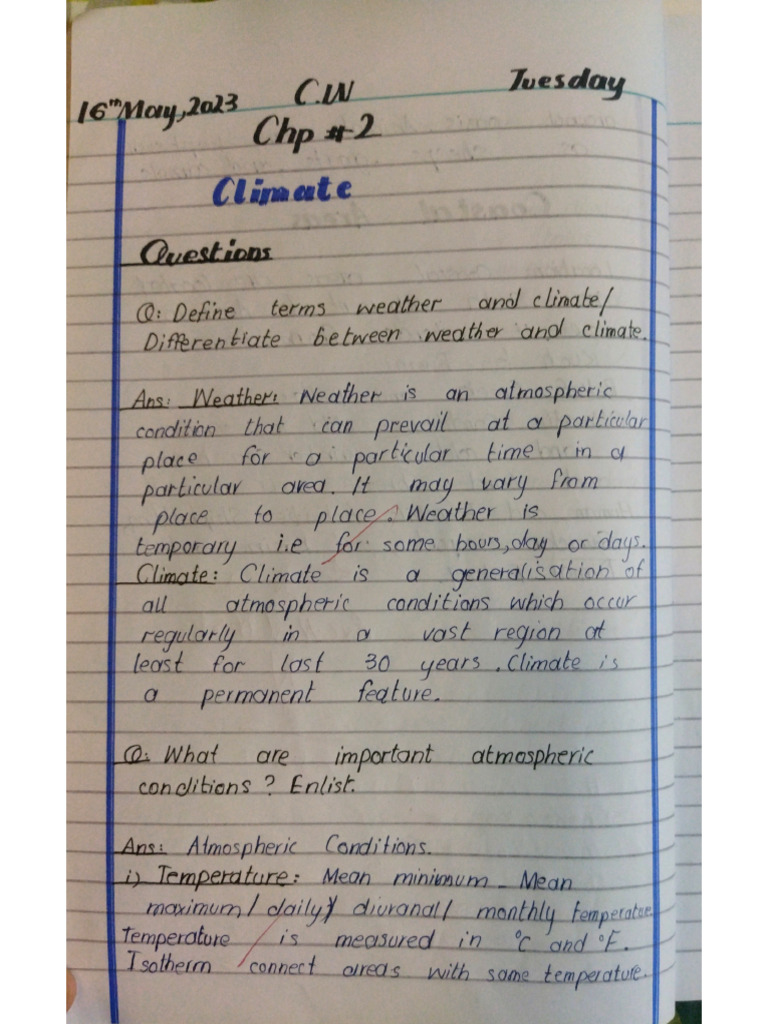 16th May, 2023 C.W Tuesday
Chp # 2
Climate
Questions
Q: Define terms weather and climate/
Differentiate between weather and climate.
Ans: Weather: Weather is an atmospheric
condition that can prevail at a particular
place for a particular time in a
particular area. It may vary from
place to place. Weather is
temporary i.e for some hours, day or days.
Climate: Climate is a generalisation of
all atmospheric conditions which occur
regularly in a vast region at
least for last 30 years. Climate is
a permanent feature.
Q: What are important atmospheric
conditions? Enlist.
Ans: Atmospheric Conditions.
i) Temperature: Mean minimum - Mean
maximum/ daily/ diuranal/ monthly temperature
Temperature is measured in °C and °F.
Isotherm connect areas with same temperature.